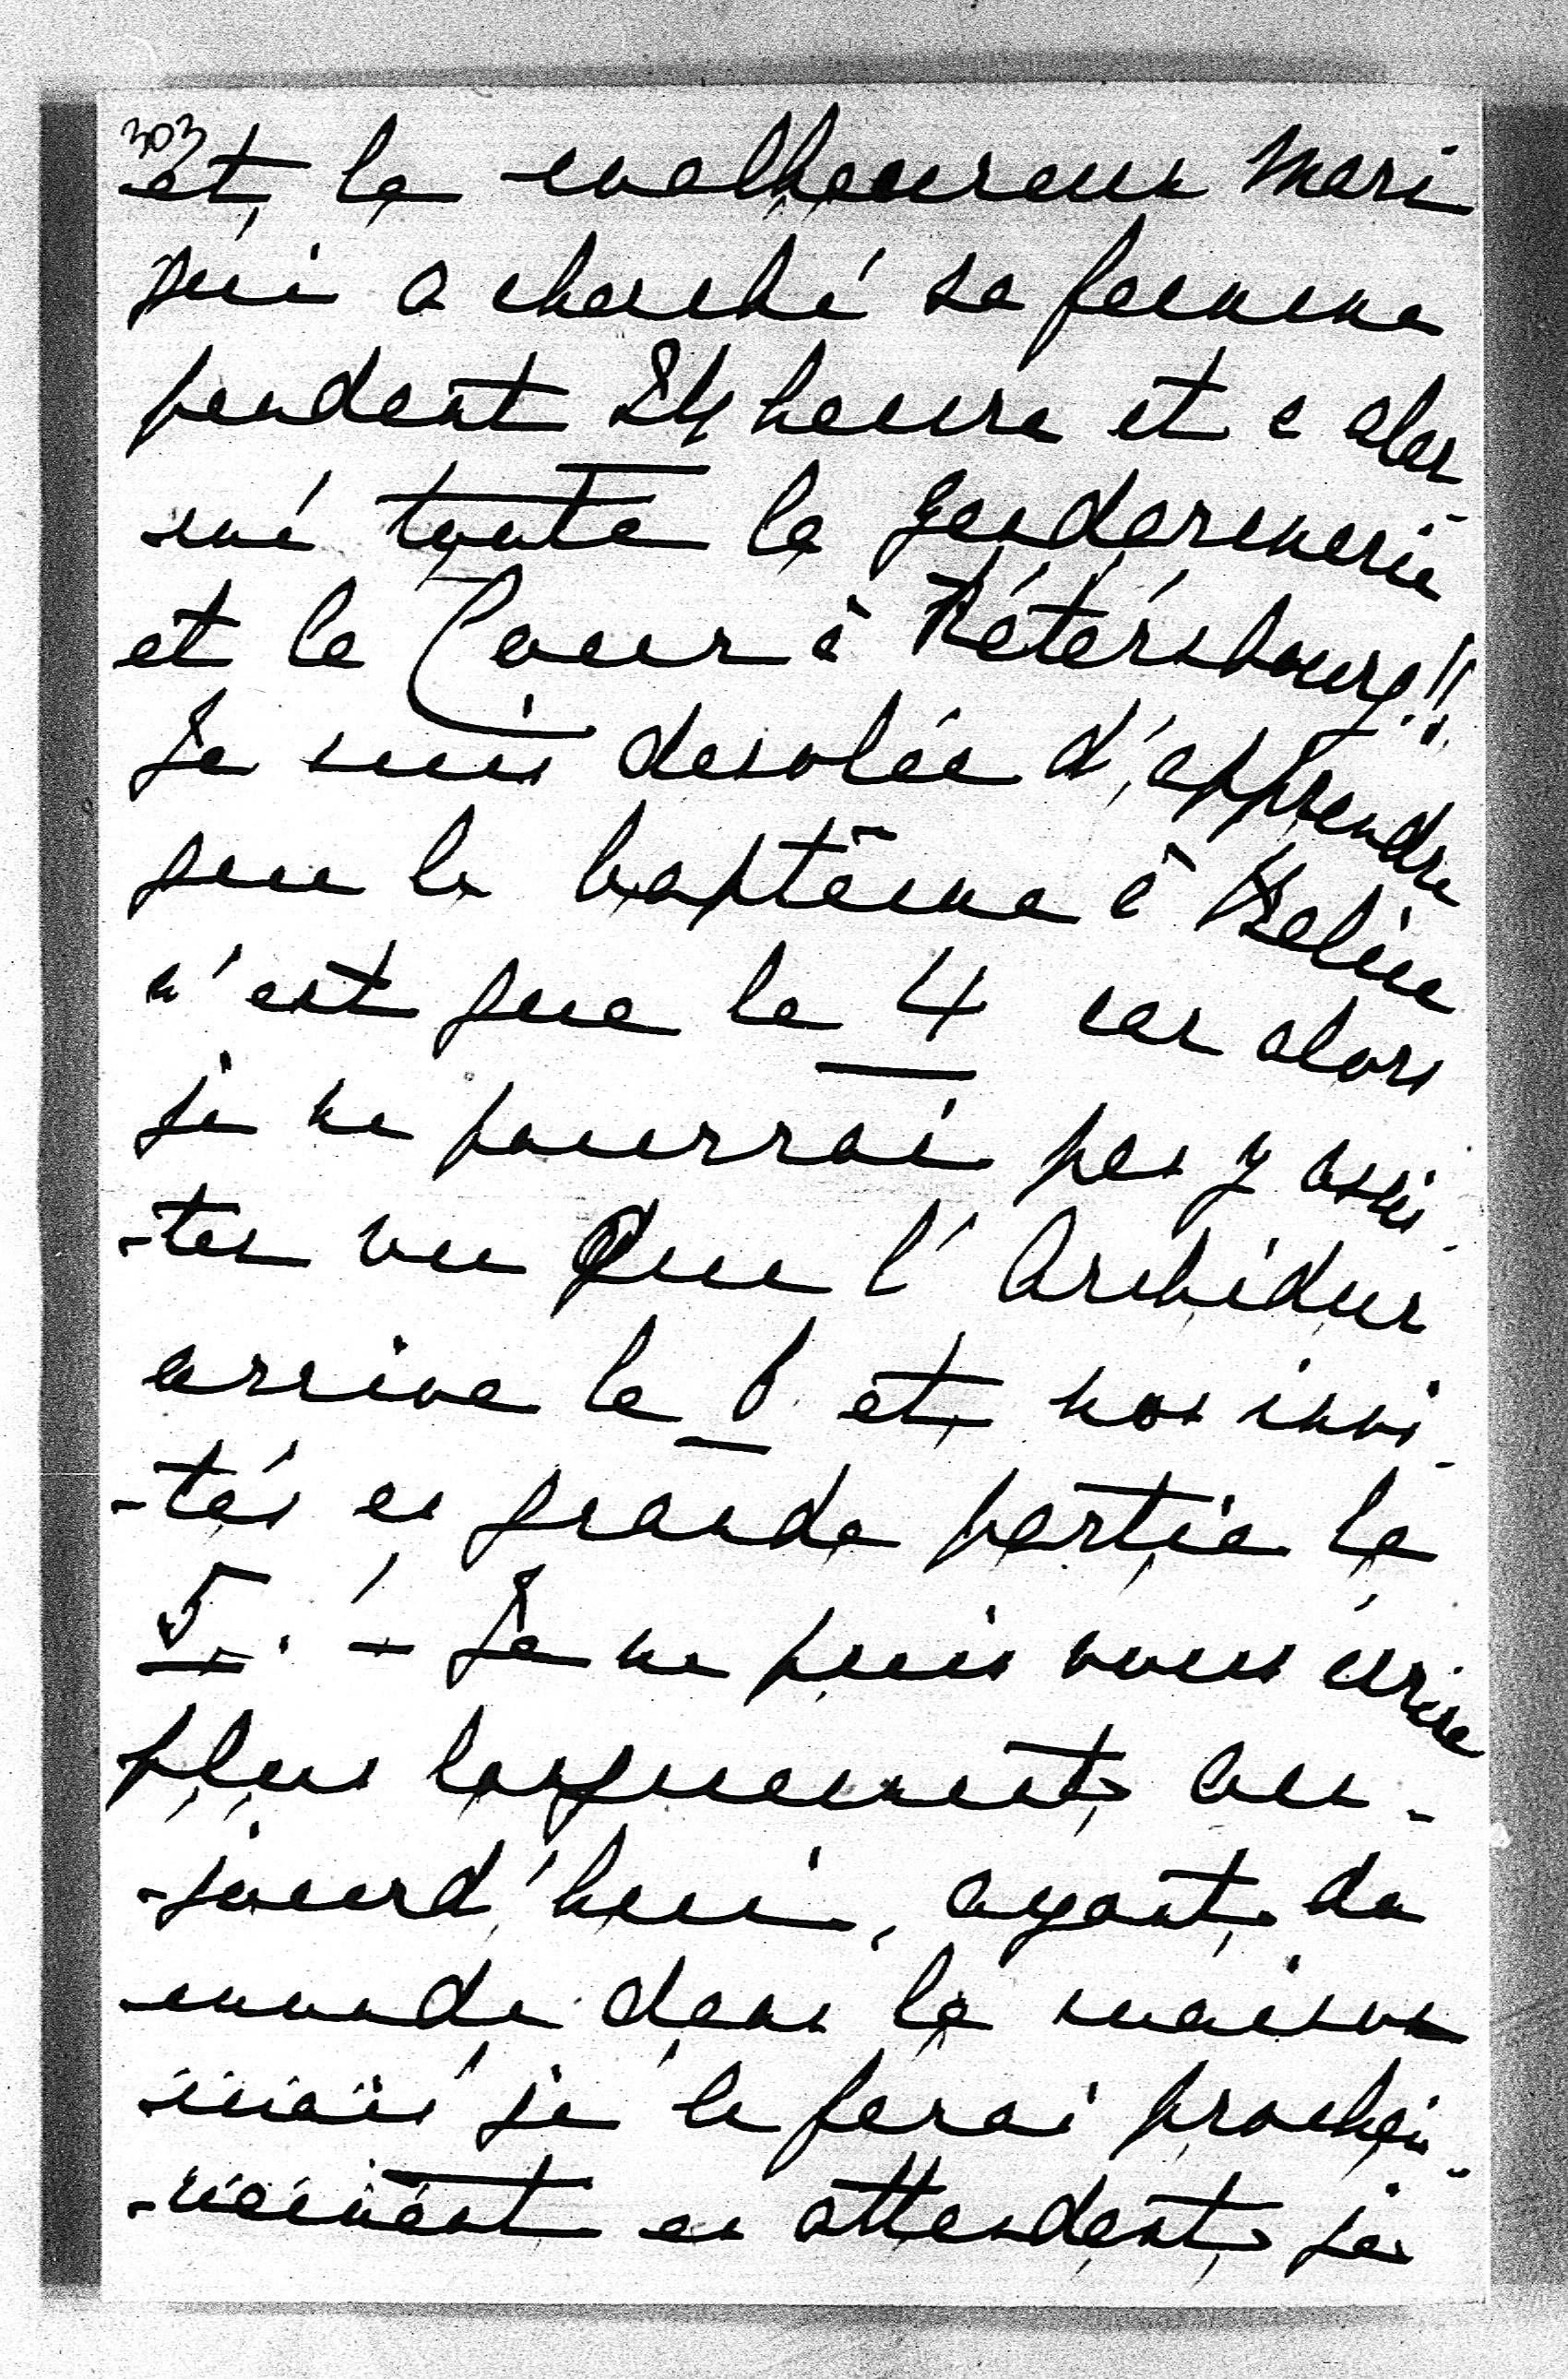 303
et le malheureux Mari
qui a cherché sa femme
pendant 24 heure et a alar
mé toute la gendarmerie
et la Cour à Pétérsbourg!!
Je suis desolée d'apprendre
que le baptême à
n'est que le 4 car alors
je ne pourrai pas y assis
-ter vu que l'Archiduc
arrive le et nos invi-
-tés en grande partie le
5. - Je ne puis vous écrire
plus longuement au-
-jourd'hui, ayant du
monde dans la maison
mais je le ferai prochai-
-nement en attendant je